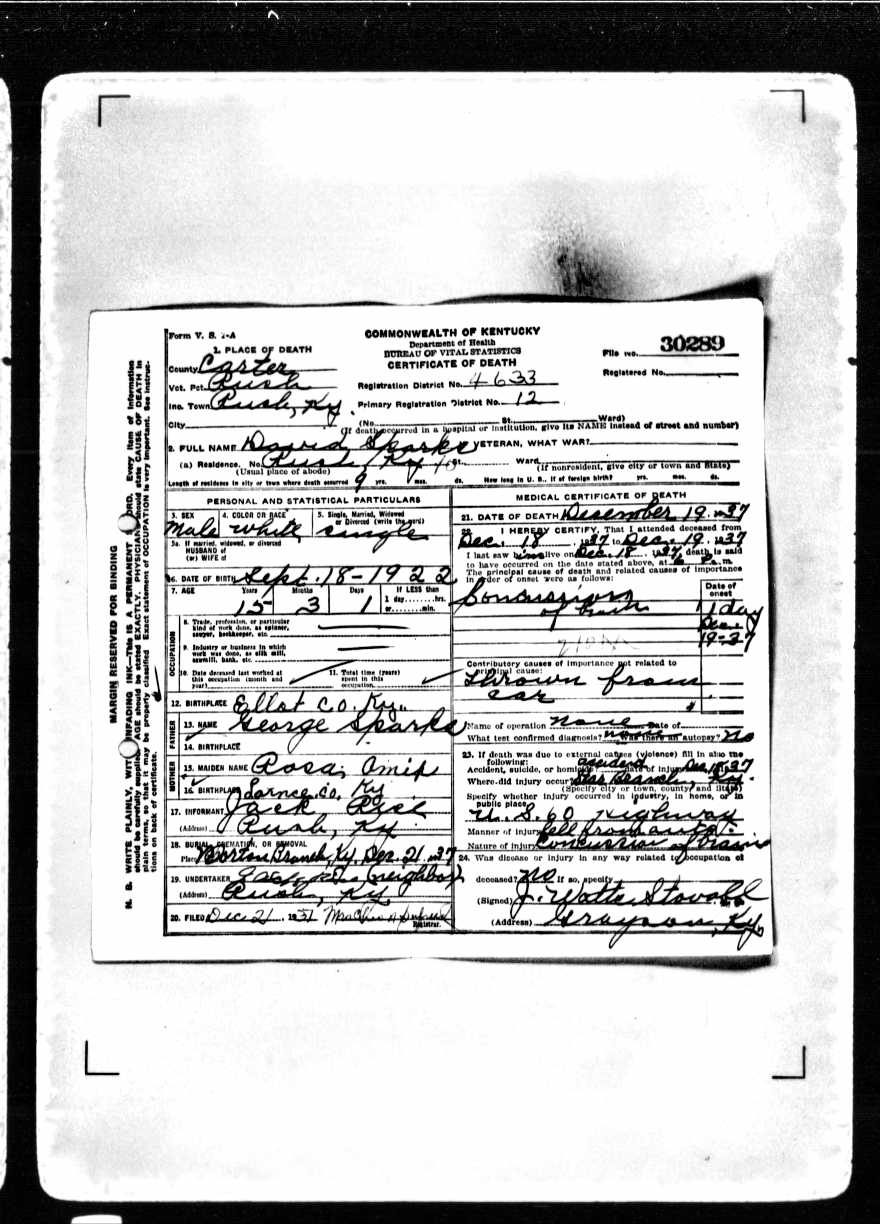 Form V. S. 1-A
COMMONWEALTH OF KENTUCKY
Department of Health
BUREAU OF VITAL STATISTICS
CERTIFICATE OF DEATH
File No. 30289
Registered No.
1. PLACE OF DEATH
County Carter
Vot. Pct. Rush
Registration District No. 4633
Inc. Town Rush, Ky.
Primary Registration District No. 12
City (No. St. Ward)
(If death occurred in a hospital or institution, give its NAME instead of street and number)
2. FULL NAME David Sparks VETERAN, WHAT WAR?
(a) Residence. No. Rush, Ky Ward
(Usual place of abode) (If nonresident, give city or town and State)
Length of residence in city or town where death occurred 9 yrs. mos. ds. How long in U. S., if of foreign birth? yrs. mos. ds.
PERSONAL AND STATISTICAL PARTICULARS
3. SEX Male
4. COLOR OR RACE white
5. Single, Married, Widowed or Divorced (write the word) single
5a. If married, widowed, or divorced
HUSBAND of
(or) WIFE of
6. DATE OF BIRTH Sept. 18-1922
7. AGE Years 15 Months 3 Days 1 If LESS than
1 day........hrs.
or........min.
OCCUPATION
8. Trade, profession, or particular
kind of work done, as spinner,
sawyer, bookkeeper, etc.
9. Industry or business in which
work was done, as silk mill,
sawmill, bank, etc.
10. Date deceased last worked at
this occupation (month and
year)
11. Total time (years)
spent in this
occupation
12. BIRTHPLACE Elliot Co. Ky.
FATHER
13. NAME George Sparks
14. BIRTHPLACE
MOTHER
15. MAIDEN NAME Rosa
16. BIRTHPLACE Co. Ky
17. INFORMANT Jack Rice
(Address) Rush, Ky.
18. BURIAL, CREMATION, OR REMOVAL
Place Branch, Ky. Dec. 21 1937
19. UNDERTAKER (neighbor)
(Address) Rush, Ky.
20. FILED Dec 21, 1937 Mrs
Registrar.
MEDICAL CERTIFICATE OF DEATH
21. DATE OF DEATH December 19. 1937
22. I HEREBY CERTIFY, That I attended deceased from
Dec. 18 1937 to Dec. 19. 1937
I last saw him alive on Dec. 18, 1937, death is said
to have occurred on the date stated above, at m.
The principal cause of death and related causes of importance
in order of onset were as follows:
Date of onset
Concussion
of brain
1 day
Dec.
19-37
Contributory causes of importance not related to
principal cause:
thrown from
car
Name of operation none Date of
What test confirmed diagnosis? none Was there an autopsy? No
23. If death was due to external causes (violence) fill in also the
following:
Accident, suicide, or homicide? accident Date of injury Dec. 18 1937
Where did injury occur? Ky.
(Specify city or town, county and State)
Specify whether injury occurred in industry, in home, or in
public place.
U. S. 60 Highway
Manner of injury fell from auto.
Nature of injury Concussion of brain
24. Was disease or injury in any way related to occupation of
deceased? No If so, specify
(Signed) J. Watts Stovall
(Address) Grayson, Ky.
MARGIN RESERVED FOR BINDING
N. B. WRITE PLAINLY, WITH UNFADING INK—This IS A PERMANENT RECORD. Every item of information
should be carefully supplied. AGE should be stated EXACTLY. PHYSICIANS should state CAUSE OF DEATH in
plain terms, so that it may be properly classified. Exact statement of OCCUPATION is very important. See instruc-
tions on back of certificate.